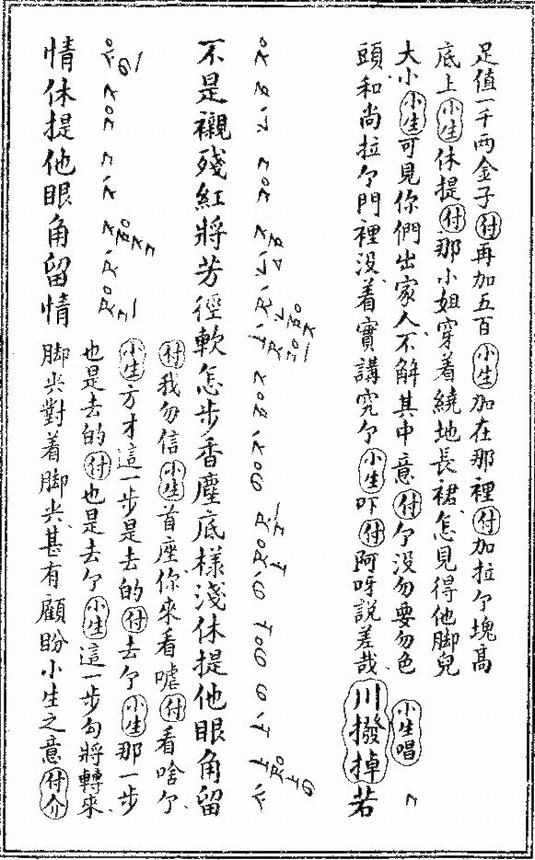 足值一千兩金子付再加五百小生加在那裡付加拉个塊高
底上小生休提付那小姐穿着繞地長裙怎見得他脚兒
大小小生可見你們出家人不解其中意付个沒勿要勿色
頭和尚拉个門裡沒着實講究个小生吓付阿呀説差哉川撥掉若
小生唱
不是襯殘紅將芳徑軟怎步香塵底樣淺休提他眼角留
付我勿信小生首座你來看嘘付看啥个
小生方才這一步是去的付去个小生那一步
也是去的付也是去个小生這一步勾將轉來
情休提他眼角留情脚尖對着脚尖甚有顧盼小生之意付介